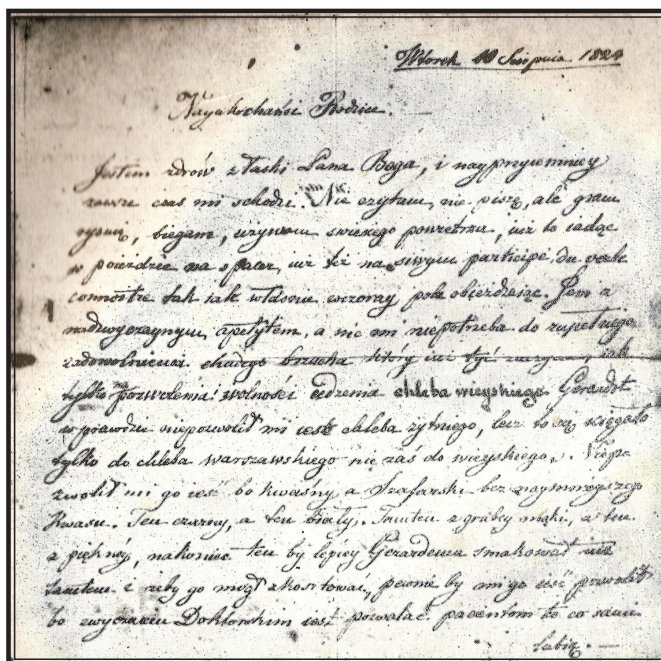 Wtorek 10 Sierpnia. 1824
Nayukochańsi Rodzice. —
Jestem zdrów z łaski Pana Boga, i nayprzyiemniey
zawsze czas mi schodzi. Nie czytam, nie piszę, ale gram
rysuię, biegam, używam świeżego powietrza, iuż to iadąc
w poieździe na spacer, iuż też na siwym participe du verbe
connoitre tak iak właśnie wczoray pole obieżdżaiąc. Jem z
nadzwyczaynym apetytem, a nic mi niepotrzeba do zupełnego
zadowolnienia chudego brzucha który iuż tyć zaczyna, iak
tylko pozwolenia na wolność iedzenia chleba wieyskiego. Gerardot
wprawdzie niepozwolił mi ieść chleba żytnego, lecz to się ściągało
tylko do chleba warszawskiego nie zaś do wieyskiego.
zwolił mi go ieść bo kwaśny, a Szafarski bez naymnieyszego
kwasu. Ten czarny, a ten biały. Tamten z grubey mąki, a ten
z piękney, nakoniec ten by lepiey Gerardowi smakował niż
tamten i żeby go mógł skosztować, pewnie by mi go ieść pozwolił
bo zwyczaiem Doktorskim iest pozwalać pacientom to co sami
lubią. —